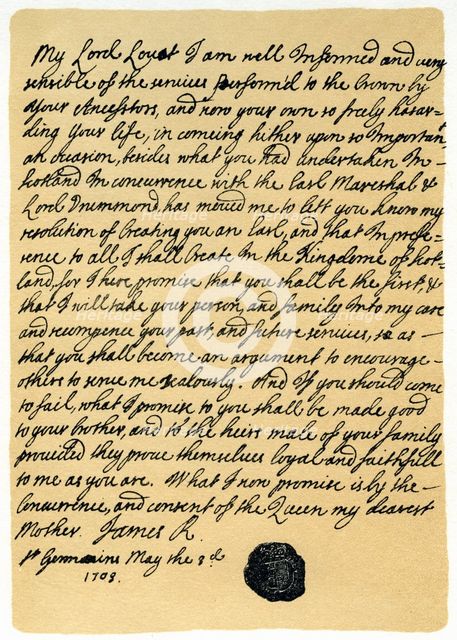 My Lord Lovat I am well Informed and very
sensible of the services perform'd to the Crown by
your Ancestors, and now your own so freely hasar-
ding your life, in comeing hither upon so Important
an occasion, besides what you had undertaken In
Scotland In concurrence with the Earl Mareshal &
Lord Drummond has moved me to lett you know my
resolution of Creating you an Earl, and that In prefe-
rence to all I shall Create In the Kingdome of Scot-
land, for I here promise that you shall be the first, &
that I will take your person, and family Into my care
and recompence your past, and future services, so as
that you shall become an argument to encourage
others to serve me zealously. And If you should come
to fail, what I promise to you shall be made good
to your brother, and to the heirs male of your family
provided they prove themselves loyal and faithfull
to me as you are. What I now promise is by the
Concurrence, and consent of the Queen my dearest
Mother. James R.
St Germains May the 3d
1703.
heritage